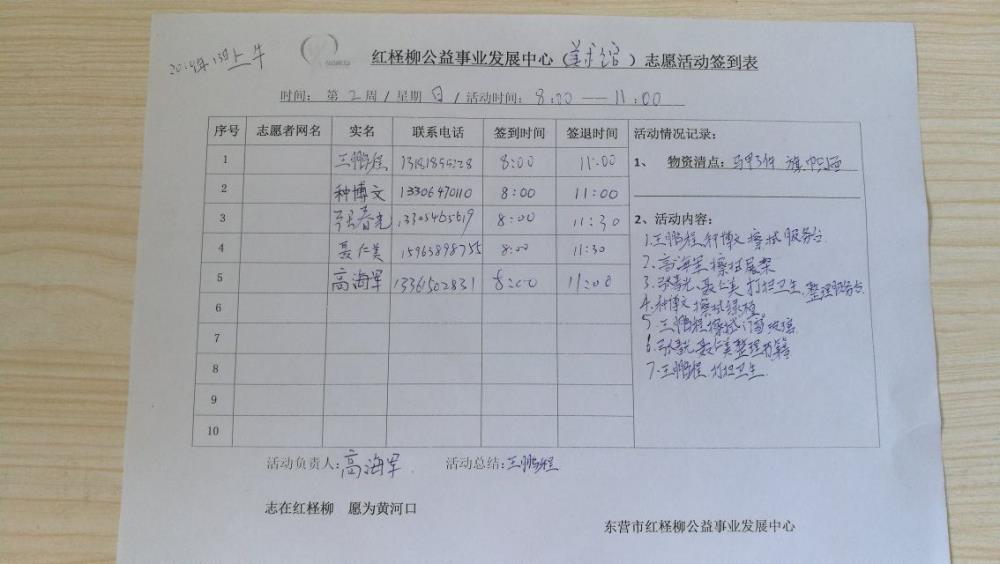 上午
红柽柳公益事业发展中心（美术馆）志愿活动签到表
时间： 第 2 周 / 星期 日 / 活动时间： 8:00 — 11:00
序号 志愿者网名 实名 联系电话 签到时间 签退时间 活动情况记录：
1 王鹏程 8:00 11:00
1、 物资清点：
2 种博文 13306470110 8:00 11:00
3 张春光 13305465619 8:00 11:30
2、活动内容：
4 聂仁美 15963898755 8:00 11:30
5 高海军 13361502831 8:00 11:00
6
7
8
9
10
1.王鹏程 种博文 擦拭服务台
2.高海军 擦拭展架
3.张春光、聂仁美 打扫卫生，整理服务台
4.种博文 擦拭绿植
5.王鹏程 擦拭门窗玻璃
6.张春光 聂仁美 整理书籍
7.王鹏程 打扫卫生
活动负责人：高海军 活动总结：王鹏程
志在红柽柳 愿为黄河口
东营市红柽柳公益事业发展中心